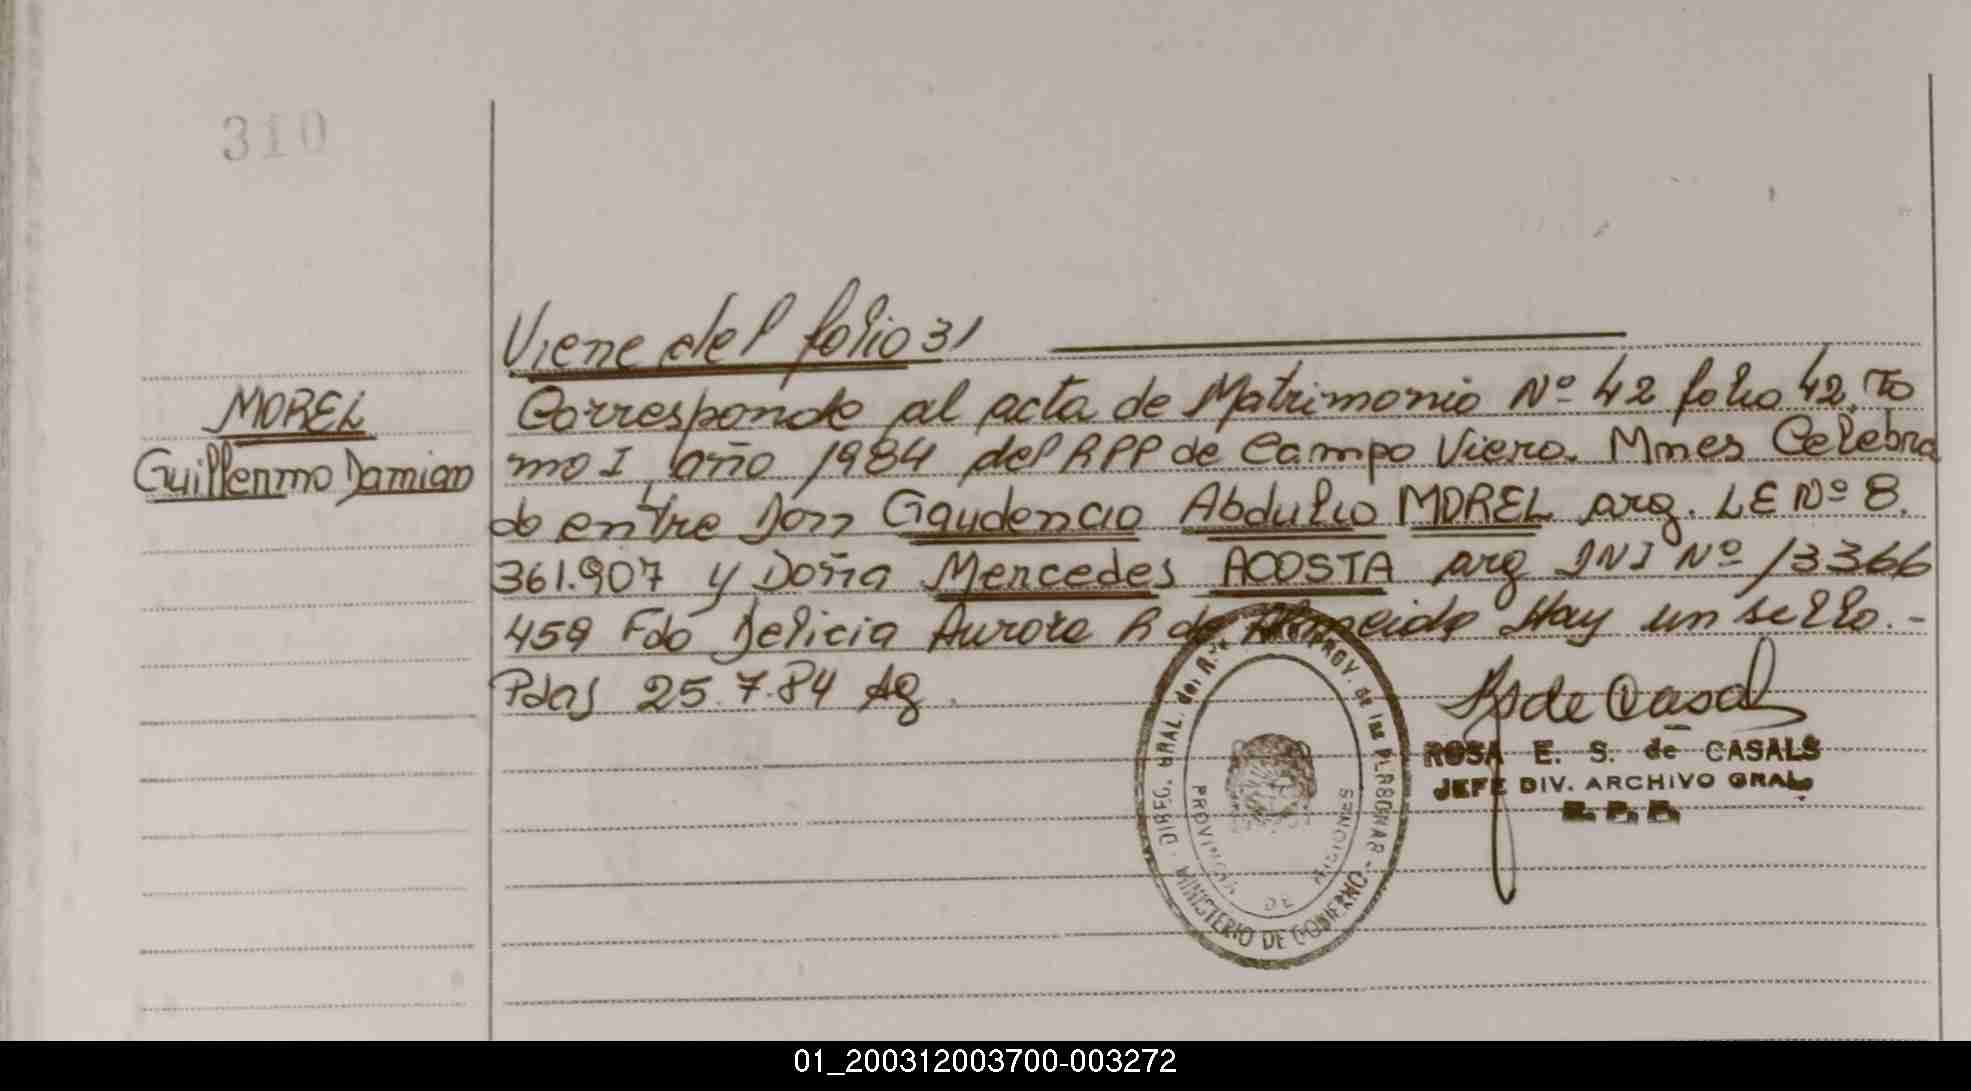 310
Viene del folio 31
MOREL
Guillermo Damian
Corresponde al acta de Matrimonio Nº 42 folio 42, To
mo I año 1984 del RPP de Campo Viera. Mnes Celebra
do entre Don Gaudencio Abdulio MOREL arg. LE Nº 8.
361.907 y Doña Mercedes ACOSTA arg INI Nº 13366
459 Fdo Delicia Aurora R de Almeida Hay un sello.-
Pdas 25.7.84 Ag.
ROSA E. S. de CASALS
JEFE DIV. ARCHIVO GRAL.
R. P. P.
DIREC. GRAL. del R. PROV. de las PERSONAS
MINISTERIO DE GOBIERNO
PROVINCIA DE MISIONES
01_200312003700-003272